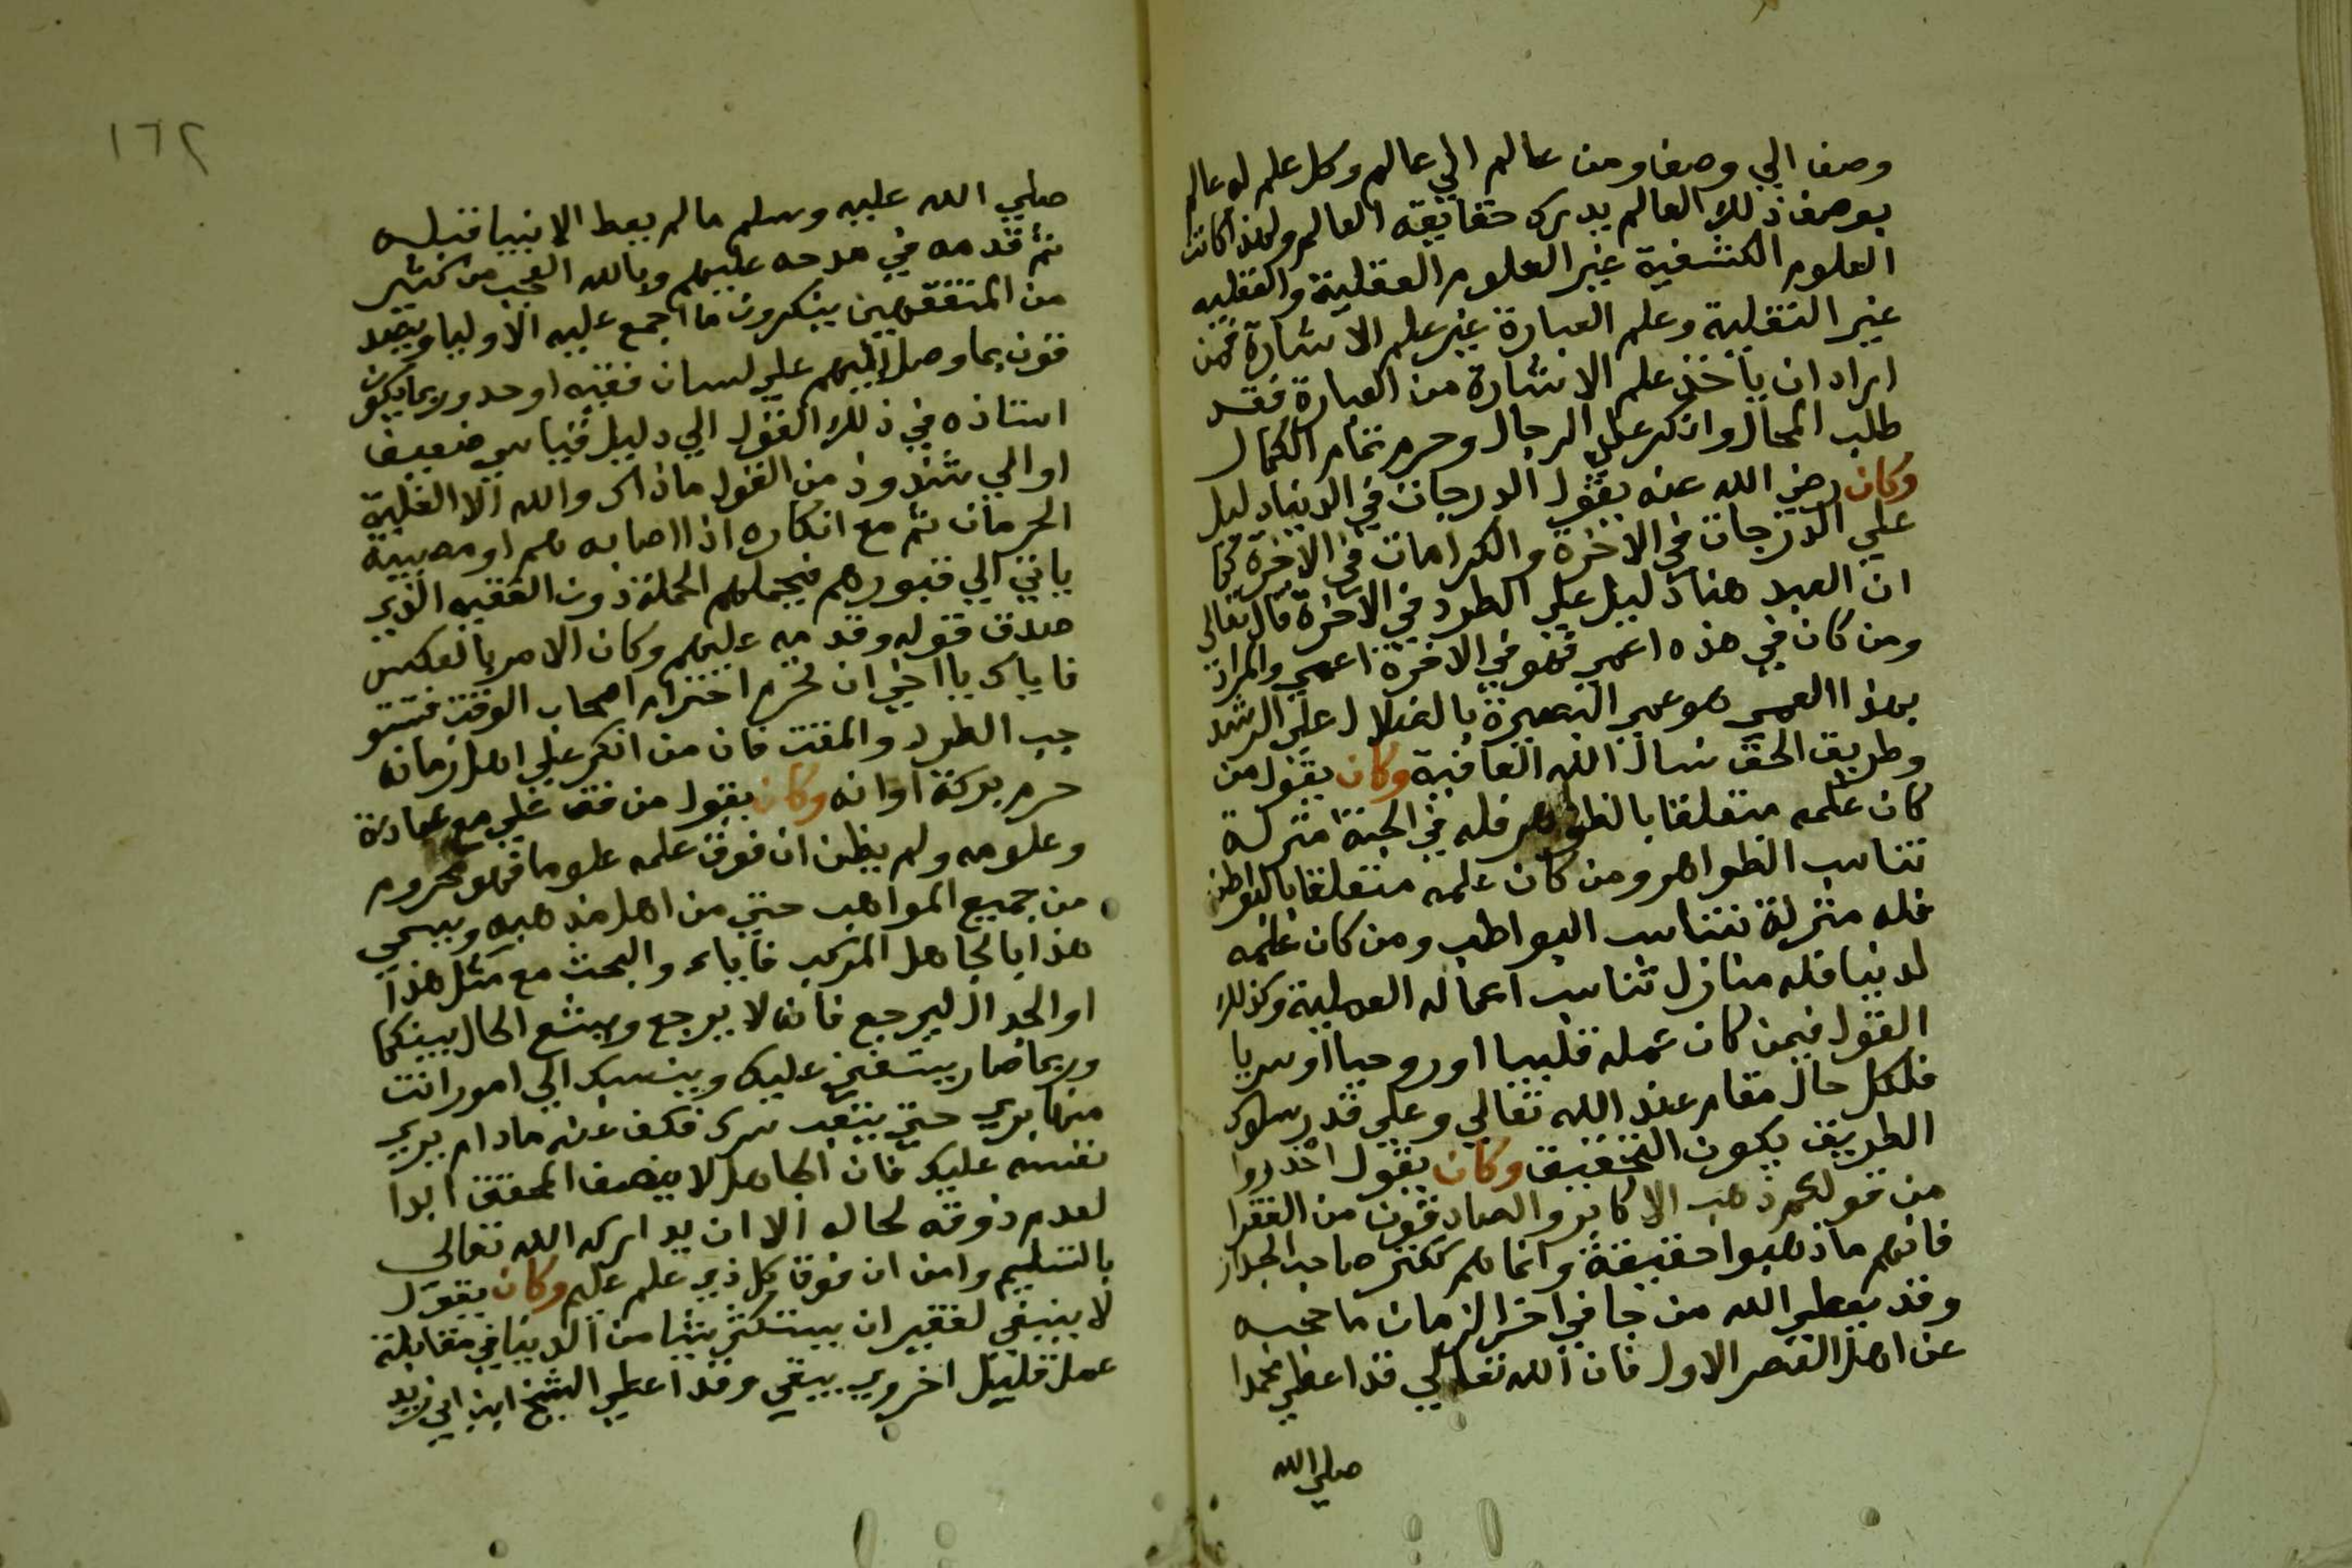 وصف الي وصف ومن عالم الي عالم وكل علم له عالم
بوصف ذلك العالم يدرك حقايقه العالم ولهذا كانت
العلوم الكشفية غير العلوم العقلية والعقليه
غير النقلية وعلم العبارة غير علم الاشارة فمن
اراد ان ياخذ علم الاشارة من العبارة فقد
طلب المحال وانكر علي الرجال وحرم تمام الكمال
وكان رضي الله عنه يقول الدرجات في الدنيا دليل
علي الدرجات في الاخرة والكرامات في الاخرة كما
ان العبد هنا دليل علي الطرد في الاخرة قال تعالي
ومن كان في هذه اعمي فهو في الاخرة اعمي والمراد
بهذا العمي هو عمي البصيرة بالضلال علي الرشد
وطريق الحق نسال الله العافية وكان يقول من
كان علمه متعلقا بالظواهر فله في الجنة منزلة
تناسب الظواهر ومن كان علمه متعلقا بالبواطن
فله منزلة تناسب البواطن ومن كان علمه
لدنيا فله منازل تناسب اعماله العملية وكذلك
القول فيمن كان عمله قلبيا او روحيا او سريا
فلكل حال مقام عند الله تعالي وعلي قدر سلوك
الطريق يكون التحقيق وكان يقول احذروا
من قولكم ذهب الاكابر والصادقون من الفقرا
فانهم ما ذهبوا حقيقة وانما هم ككنز صاحب الجدار
وقد يعطي الله من جا في اخر الزمان ما حجبه
عن اهل العصر الاول فان الله تعالي قد اعطي محمدا
صلي الله
١٦٢
صلي الله عليه وسلم ما لم يعط الانبيا قبله
ثم قدمه في مدحه عليهم وبالله العجب من كثير
من المتفقهين ينكرون ما اجمع عليه الاوليا ويصد
قون بما وصل اليهم علي لسان فقيه اوحد وربما يكون
استاذه في ذلك القول الي دليل قياسي ضعيف
او الي شذوذ من القول ماذاك والله الا الغلبة
الحرمان ثم مع انكاره اذا اصابه هم او مصيبة
ياتي الي قبورهم فيحملهم الحملة دون الفقيه الذي
صدق قوله وقدمه عليهم وكان الامر بالعكس
فاياك يا اخي ان تحرم احترام اصحاب الوقت فتستو
جب الطرد والمقت فان من انكر علي اهل زمانه
حرم بركة اوانه وكان يقول من مع عبادة
وعلومه ولم يظن ان فوق علمه علوما فهو محروم
من جميع المواهب حتي من اهل مذهبه ويسمي
هذا بالجاهل المركب فاياك والبحث مع مثل هذا
او الجدال ليرجع فانه لا يرجع ويشع الحال بينكما
وربما صار يستفتي عليك وينسبك الي امور انت
منها بري حتي يتعب سرك فكف عنه مادام يري
نفسه عليك فان الجاهل لا ينصف المحقق ابدا
لعدم ذوقه لحاله الا ان يداركه الله تعالي
بالتسليم وامن ان فوق كل ذي علم عليم وكان يقول
لا ينبغي لفقير ان يستكثر شيا من الدنيا في مقابلة
عمل قليل اخروي يبقي وقد اعطي الشيخ ابن ابي زيد